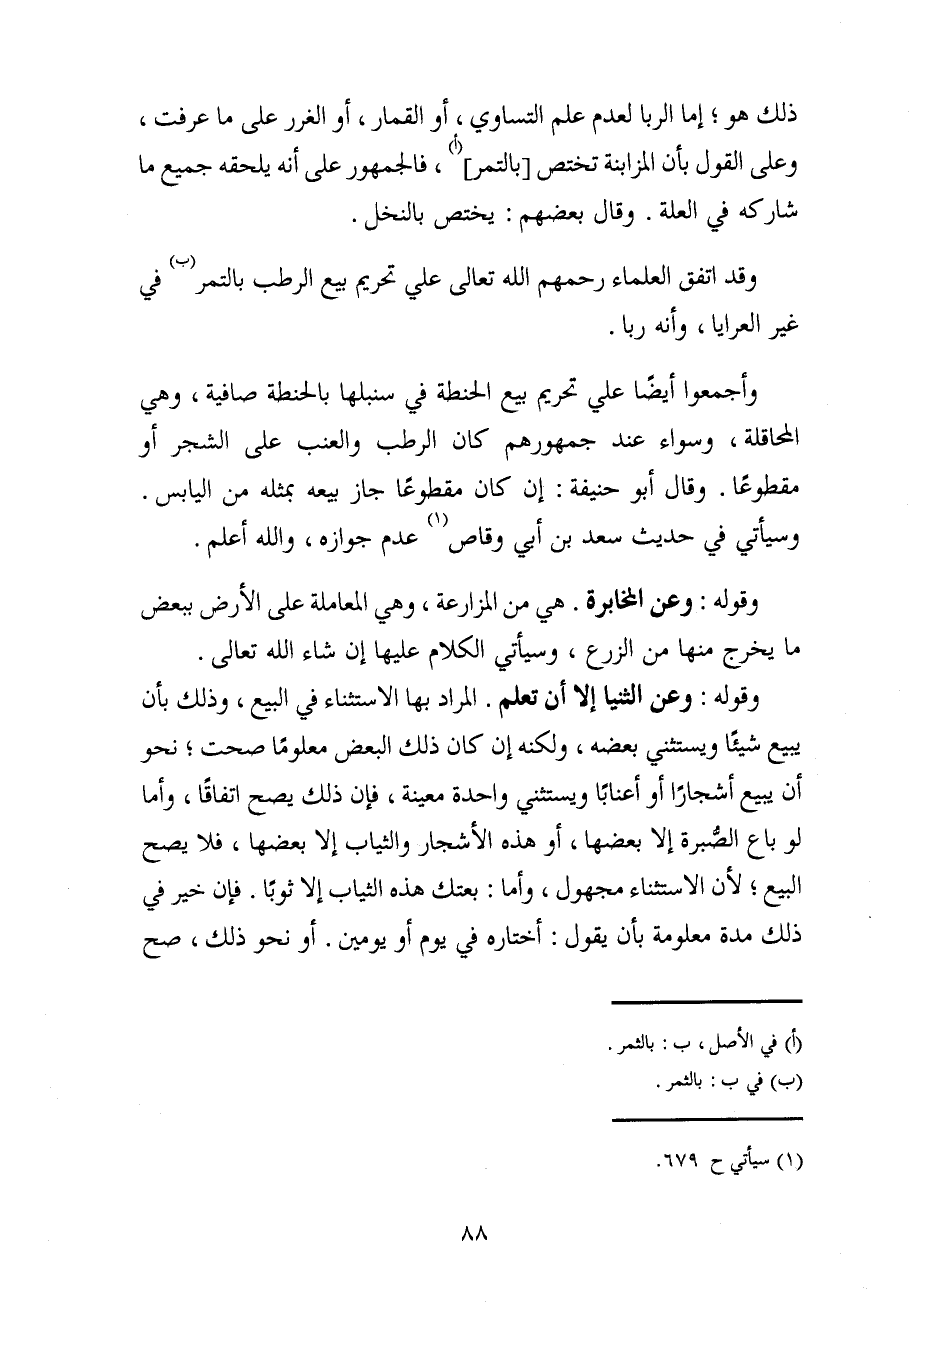 ذلك هو ؛ إما الربا لعدم علم التساوي ، أو القمار ، أو الغرر على ما عرفت ،
وعلى القول بأن المزابنة تختص [بالتمر](أ) ، فالجمهور على أنه يلحقه جميع ما
شاركه في العلة . وقال بعضهم : يختص بالنخل .
وقد اتفق العلماء رحمهم الله تعالى علي تحريم بيع الرطب بالتمر(ب) في
غير العرايا ، وأنه ربا .
وأجمعوا أيضًا علي تحريم بيع الحنطة في سنبلها بالحنطة صافية ، وهي
المحاقلة ، وسواء عند جمهورهم كان الرطب والعنب على الشجر أو
مقطوعًا . وقال أبو حنيفة : إن كان مقطوعًا جاز بيعه بمثله من اليابس .
وسيأتي في حديث سعد بن أبي وقاص(١) عدم جوازه ، والله أعلم .
وقوله : وعن المخابرة . هي من المزارعة ، وهي المعاملة على الأرض ببعض
ما يخرج منها من الزرع ، وسيأتي الكلام عليها إن شاء الله تعالى .
وقوله : وعن الثنيا إلا أن تعلم . المراد بها الاستثناء في البيع ، وذلك بأن
يبيع شيئًا ويستثني بعضه ، ولكنه إن كان ذلك البعض معلومًا صحت ؛ نحو
أن يبيع أشجارًا أو أعنابًا ويستثني واحدة معينة ، فإن ذلك يصح اتفاقًا ، وأما
لو باع الصُّبرة إلا بعضها ، أو هذه الأشجار والثياب إلا بعضها ، فلا يصح
البيع ؛ لأن الاستثناء مجهول ، وأما : بعتك هذه الثياب إلا ثوبًا . فإن خير في
ذلك مدة معلومة بأن يقول : أختاره في يوم أو يومين . أو نحو ذلك ، صح
(أ) في الأصل ، ب : بالثمر .
(ب) في ب : بالثمر .
(١) سيأتي ح ٦٧٩.
٨٨